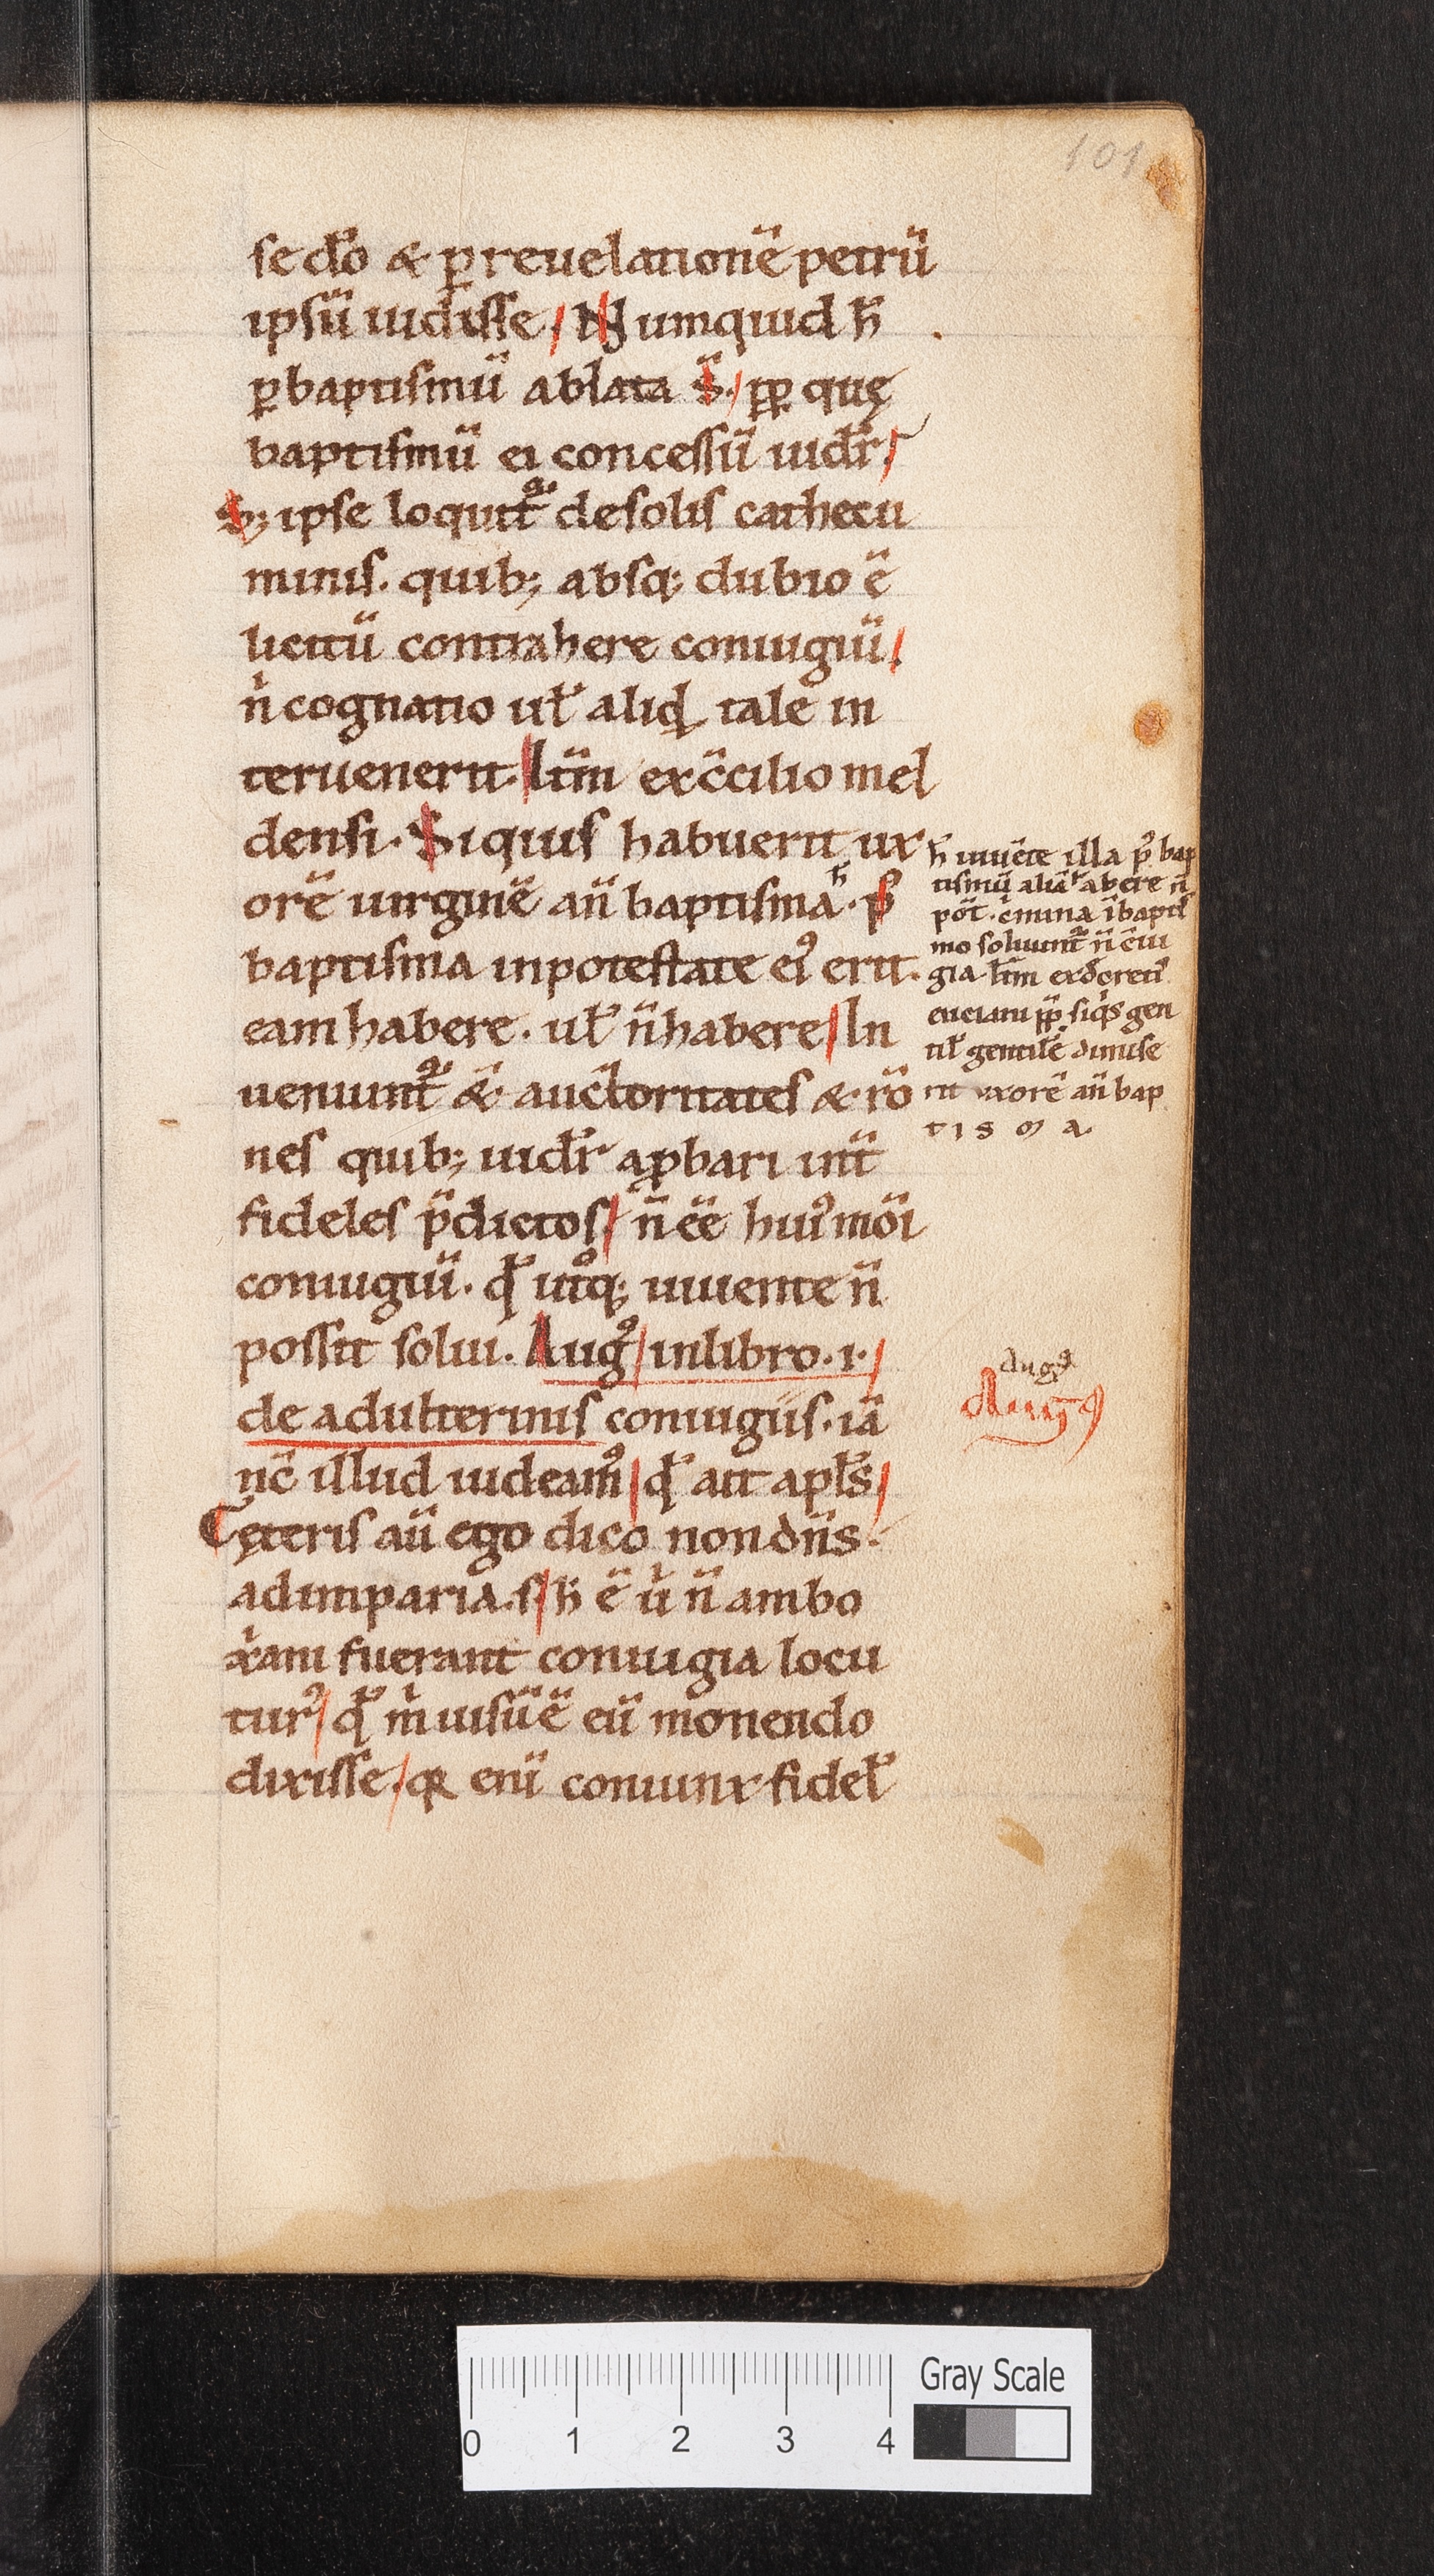 101
se dō & ꝑ reuelationē petrū
ipsū uidisse / Numquid h̄
ꝑ baptismū ablata S̄. / ꝓp quę
baptismū ei concessū uidr̄ /
S; ipse loquit᷑ de solis cathecu
minis. quib; absq; dubio ē
licitū contrahere coniugiū /
n̍ cognatio ul̄ aliqd tale in
teruenerit. Itm̄ ex c̄cilio mel
densi. Siquis habuerit ux
orē uirginē an̄ baptisma. p᷒
baptisma in potestate ei᷒ erit.
eam habere. ul̄ n̄ habere / In
ueniunt᷑ & auctoritates & ro
nes quib; uidr̄ aꝓbari int̄
fideles p̄dictos / n̄ eē hui᷒moi
coniugiū. qd̄ utoq; uiuente n̄
possit solui. Aug᷒ / in libro. i. /
de adulterinis coniugiis. iā
nc̄ illud uideam᷒ / qd̄ ait apl̄s /
Cęteris aū ego dico non dn̄s.
ad imparia. s / h̄ ē u̍ n̄ ambo
x̍ani fuerant coniugia locu
tur᷒ / qd̄ m̍ uisū ē eū monendo
dixisse. / qꝛ enī coniunx fidel̄
h̄ uiuēte illa p᷒ bap
tismū aliā habere n̄
pōt. c̍mina ī bapti
mo soluunt᷑ n̄ ćiu
gia. Itm̄ ex decreti
euciani pp̄ siq̍s gen
til̄ gentilē dimise
rit uxorē an̄ bap
tisma
Aug᷒
Aug᷒
0 1 2 3 4
Gray Scale